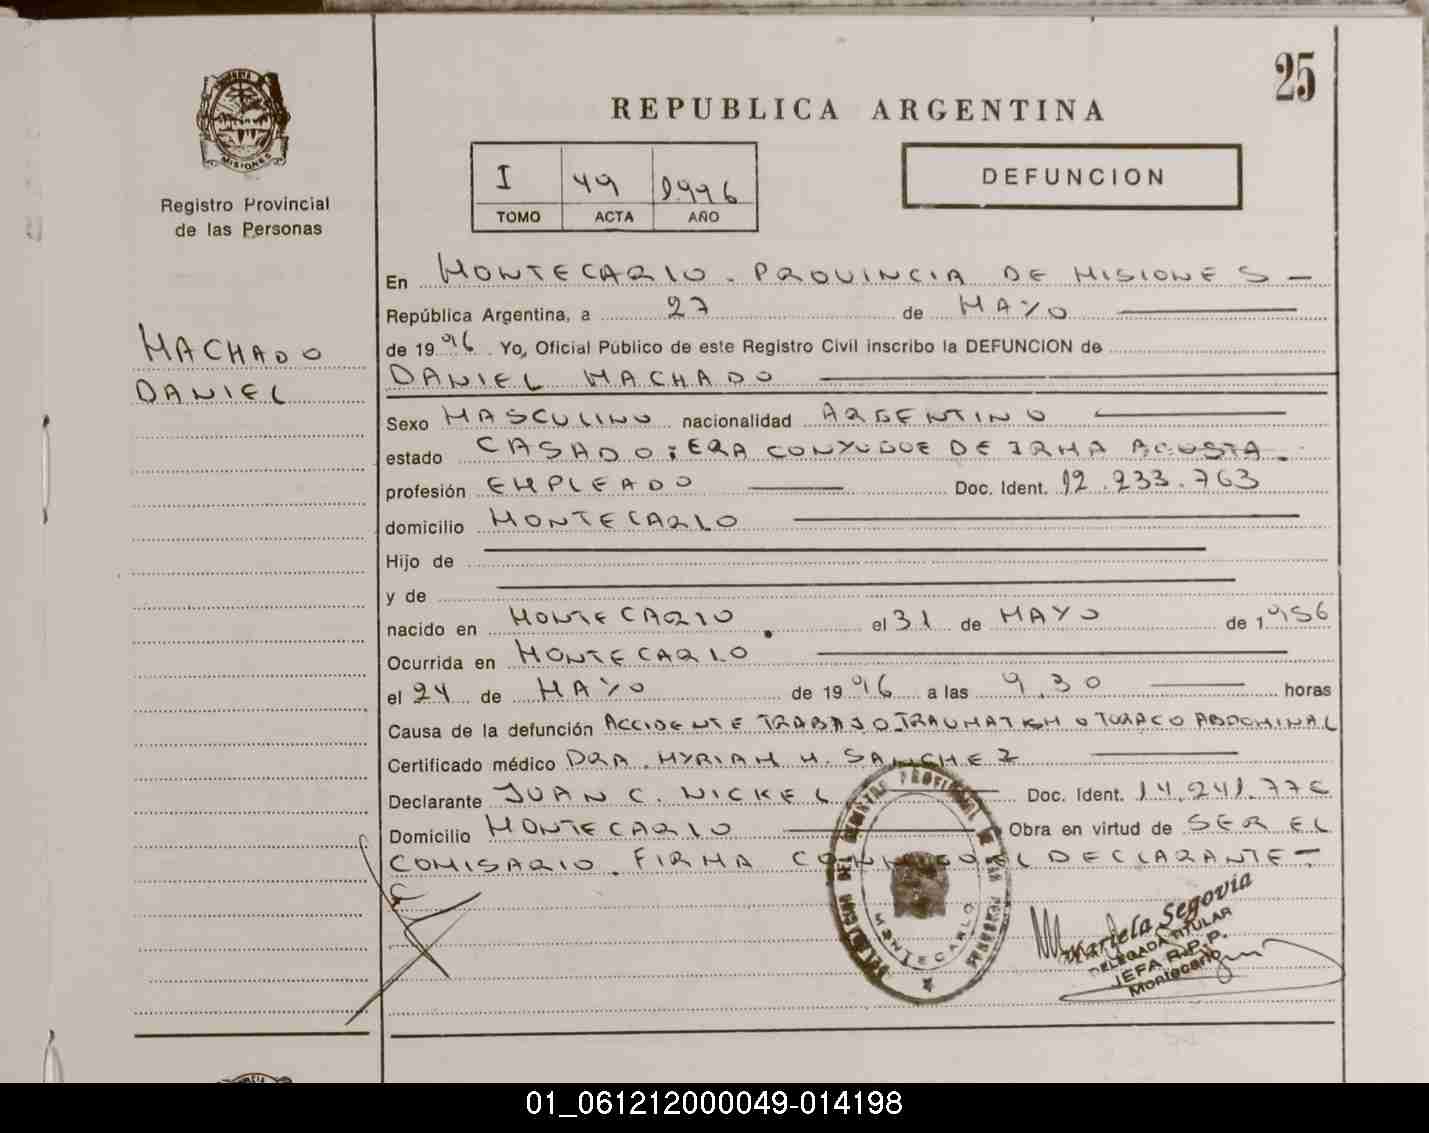 25
REPUBLICA ARGENTINA
MISIONES
Registro Provincial
de las Personas
I 49 1996
TOMO ACTA AÑO
DEFUNCION
MACHADO
DANIEL
En MONTECARLO. PROVINCIA DE MISIONES -
República Argentina, a 27 de MAYO
de 1996. Yo, Oficial Público de este Registro Civil inscribo la DEFUNCION de
DANIEL MACHADO
Sexo MASCULINO nacionalidad ARGENTINO
estado CASADO; ERA CONYUGUE DE IRMA ACOSTA.
profesión EMPLEADO Doc. Ident. 12.233.763
domicilio MONTECARLO
Hijo de
y de
nacido en MONTECARLO. el 31 de MAYO de 1956
Ocurrida en MONTECARLO
el 24 de MAYO de 1996 a las 9.30 horas
Causa de la defunción ACCIDENTE TRABAJO TRAUMATISMO TORACO ABDOMINAL
Certificado médico DRA. MYRIAM H. SANCHEZ
Declarante JUAN C. NICKEL Doc. Ident. 14.241.776
Domicilio MONTECARLO Obra en virtud de SER EL
COMISARIO. FIRMA CONMIGO EL DECLARANTE -
DELEGACION DEL REGISTRO PROVINCIAL DE LAS PERSONAS
MONTECARLO
Mariela Segovia
DELEGADA TITULAR
JEFA R.P.P.
Montecarlo
01_061212000049-014198